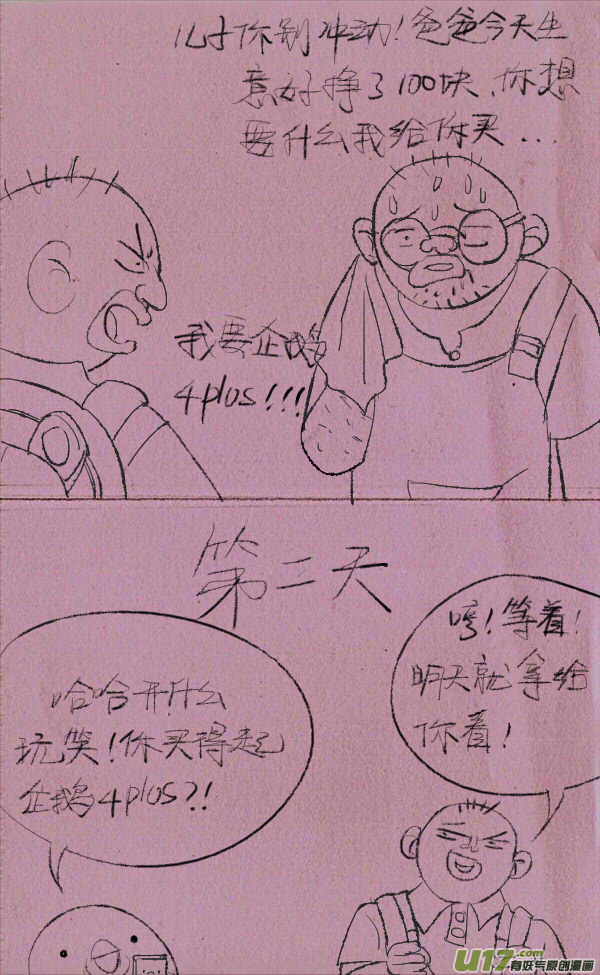 儿子你别冲动!爸爸今天生
意好挣了100块,你想
要什么我给你买...
我要企鹅
4plus!!!
第二天
哈哈开什么
玩笑!你买得起
企鹅4plus?!
哼!等着!
明天就拿给
你看!
U17.com
有妖气原创漫画